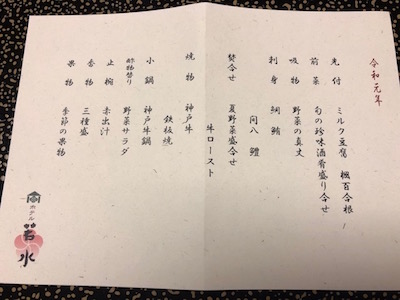 令和元年
先付 ミルク豆腐 楓百合根
前菜 旬の珍味酒肴盛り合せ
吸物 野菜の真丈
刺身 鯛 鮪
間八 鱧
焚合せ 夏野菜盛合せ
牛ロースト
焼物 神戸牛
鉄板焼
小鍋 神戸牛鍋
酢物替り 野菜サラダ
止椀 赤出汁
香物 三種盛
果物 季節の果物
ホテル
若水